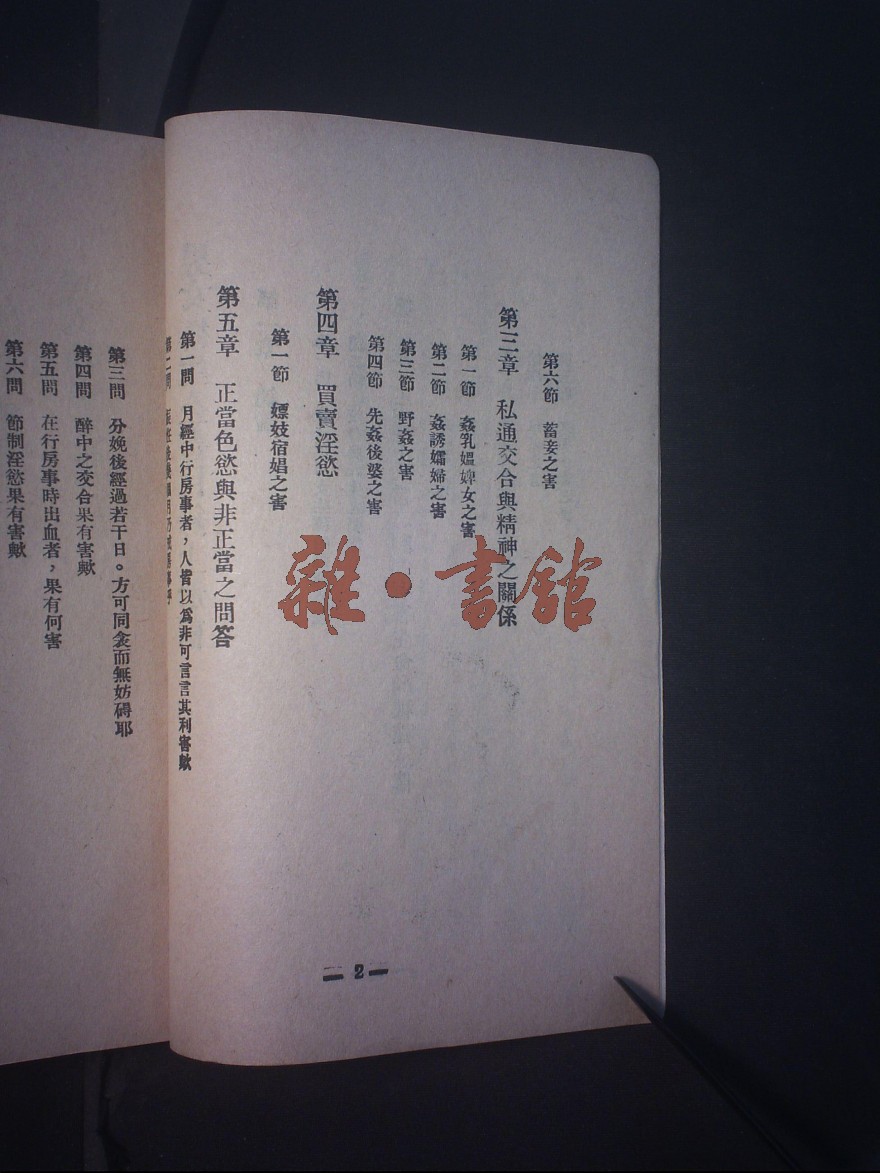 第六節　蓄妾之害
第三章　私通交合與精神之關係
第一節　姦乳媼婢女之害
第二節　姦誘孀婦之害
第三節　野姦之害
第四節　先姦後娶之害
第四章　買賣淫慾
第一節　嫖妓宿娼之害
第五章　正當色慾與非正當之問答
第一問　月經中行房事者，人皆以為非可言言其利害歟
第二問
2
第三問　分娩後經過若干日。方可同衾而無妨碍耶
第四問　醉中之交合果有害歟
第五問　在行房事時出血者，果有何害
第六問　節制淫慾果有害歟
雜·書館